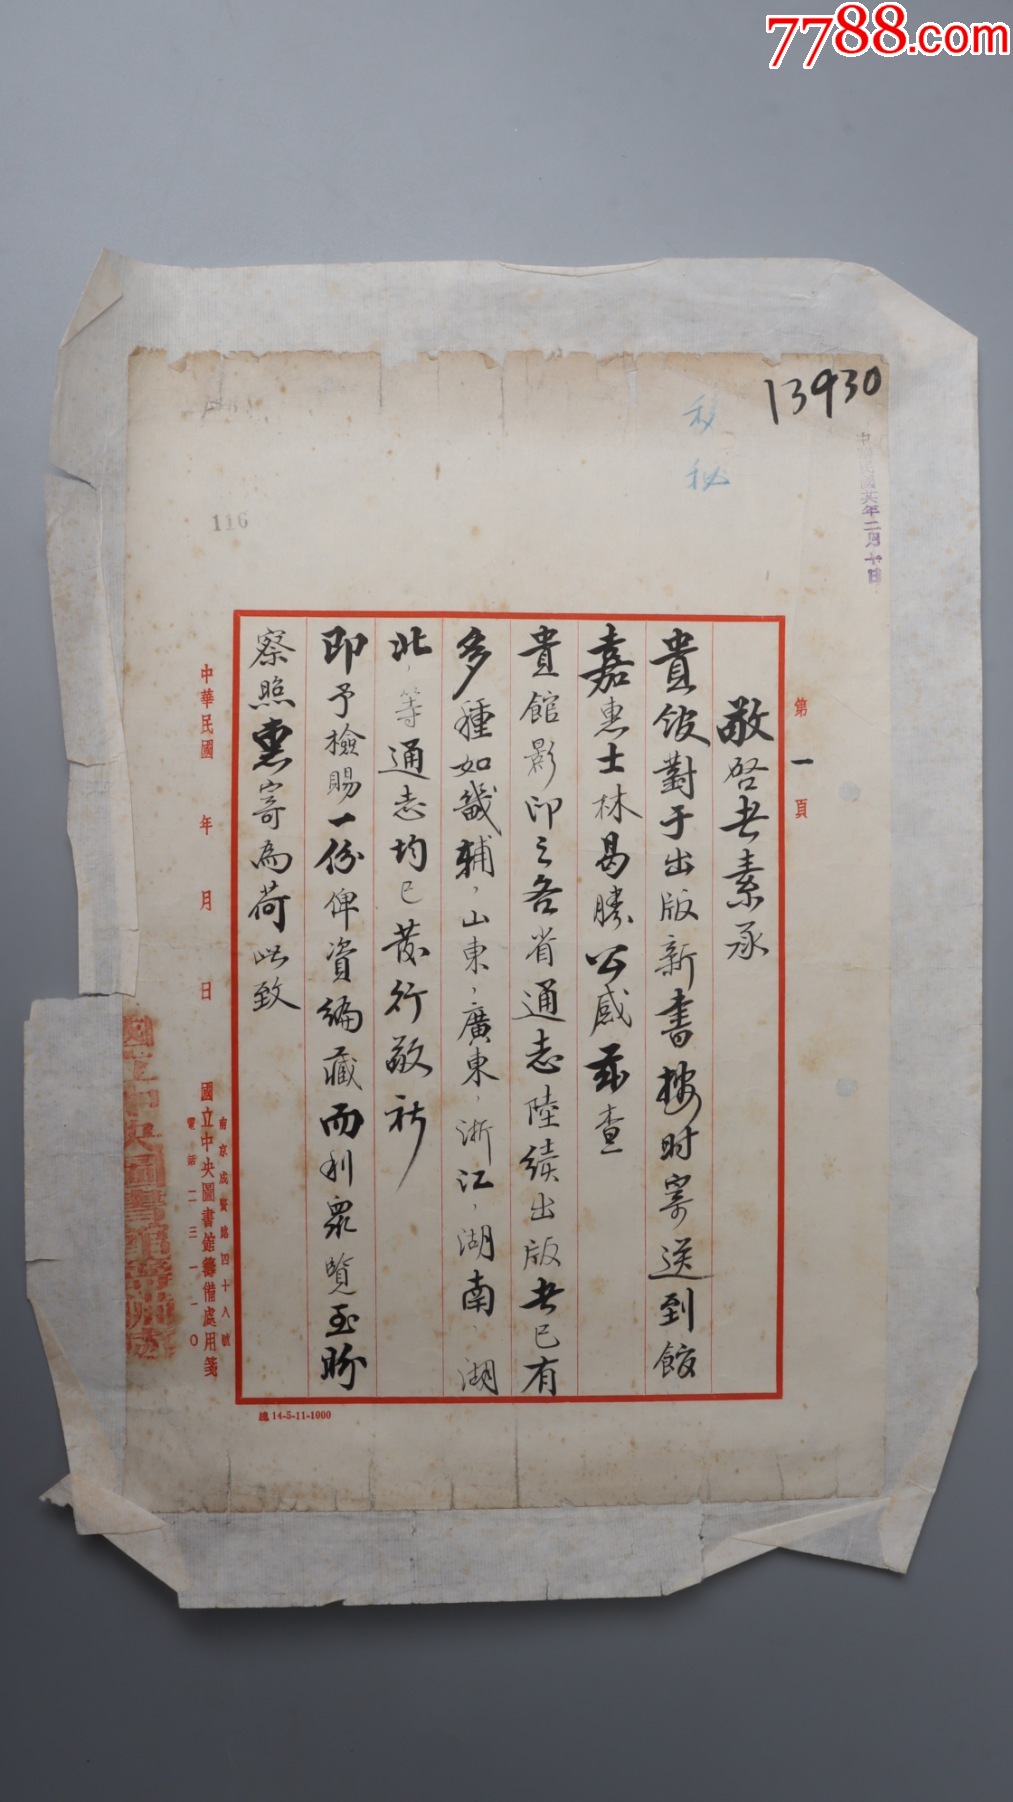 7788.com
13930
秘
中華民國廿六年二月十日
116
第一頁
敬啓者素承
貴館對于出版新書按时寄送到館
嘉惠士林曷勝公感茲查
貴館影印之各省通志陸續出版者已有
多種如畿輔，山東，廣東，浙江，湖南，湖
北，等通志均已發行敬祈
即予檢賜一份俾資編藏而利衆覽至盼
察照惠寄為荷此致
中華民國 年 月 日
南京成賢路四十八號
國立中央圖書館籌備處用箋
電話二三一一〇
國立中央圖書館籌備處
總 14-5-11-1000